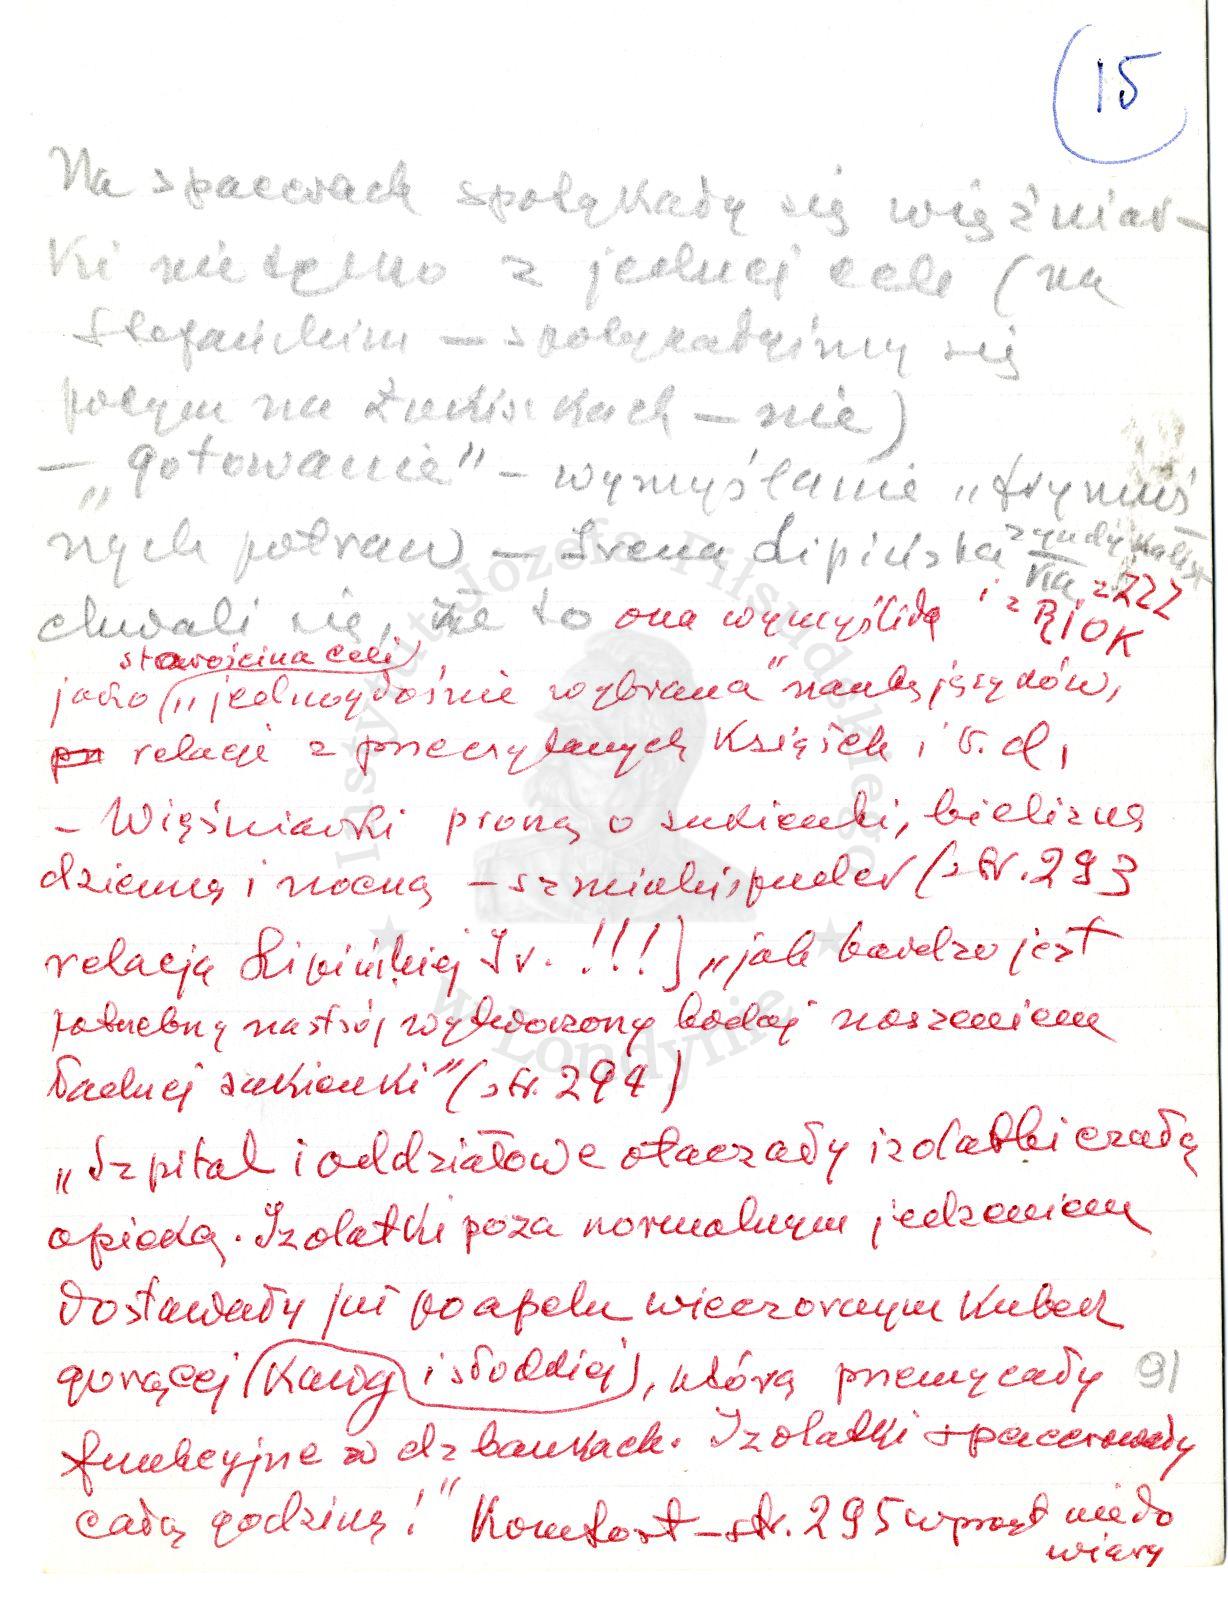 15
Na spacerach spotykały się więźniar-
ki nie tylko z jednej celi (na
Stefańskim – spotykałyśmy się
poczym na Łukiszkach – nie)
– „gotowanie" – wymyślanie „
nych potraw – Irena Lipińska
chwali się, że to ona wymyśliła i z RIOK z ZZZ
starościna celi
jako „jednogłośnie wybrana" nauka języków,
relacje z przeczytanych książek i t.d,
– Więźniarki proszą o sukienki, bieliznę
dzienną i nocną – szminki, puder (str. 293
relacja Lipińskiej Ir. !!!) „jak bardzo jest
potrzebny nastrój wytworzony bodaj noszeniem
ładnej sukienki" (str. 294)
„Szpital i oddziałowe otaczały izolatki czułą
opieką. Izolatki poza normalnym jedzeniem
dostawały już po apelu wieczornym kubek
gorącej kawy i słodkiej, którą przemycały
funkcyjne w dzbankach. Izolatki spacerowały
całą godzinę!" Komfort – str. 295 wprost nie do
wiary
91
Instytut Józefa Piłsudskiego
w Londynie